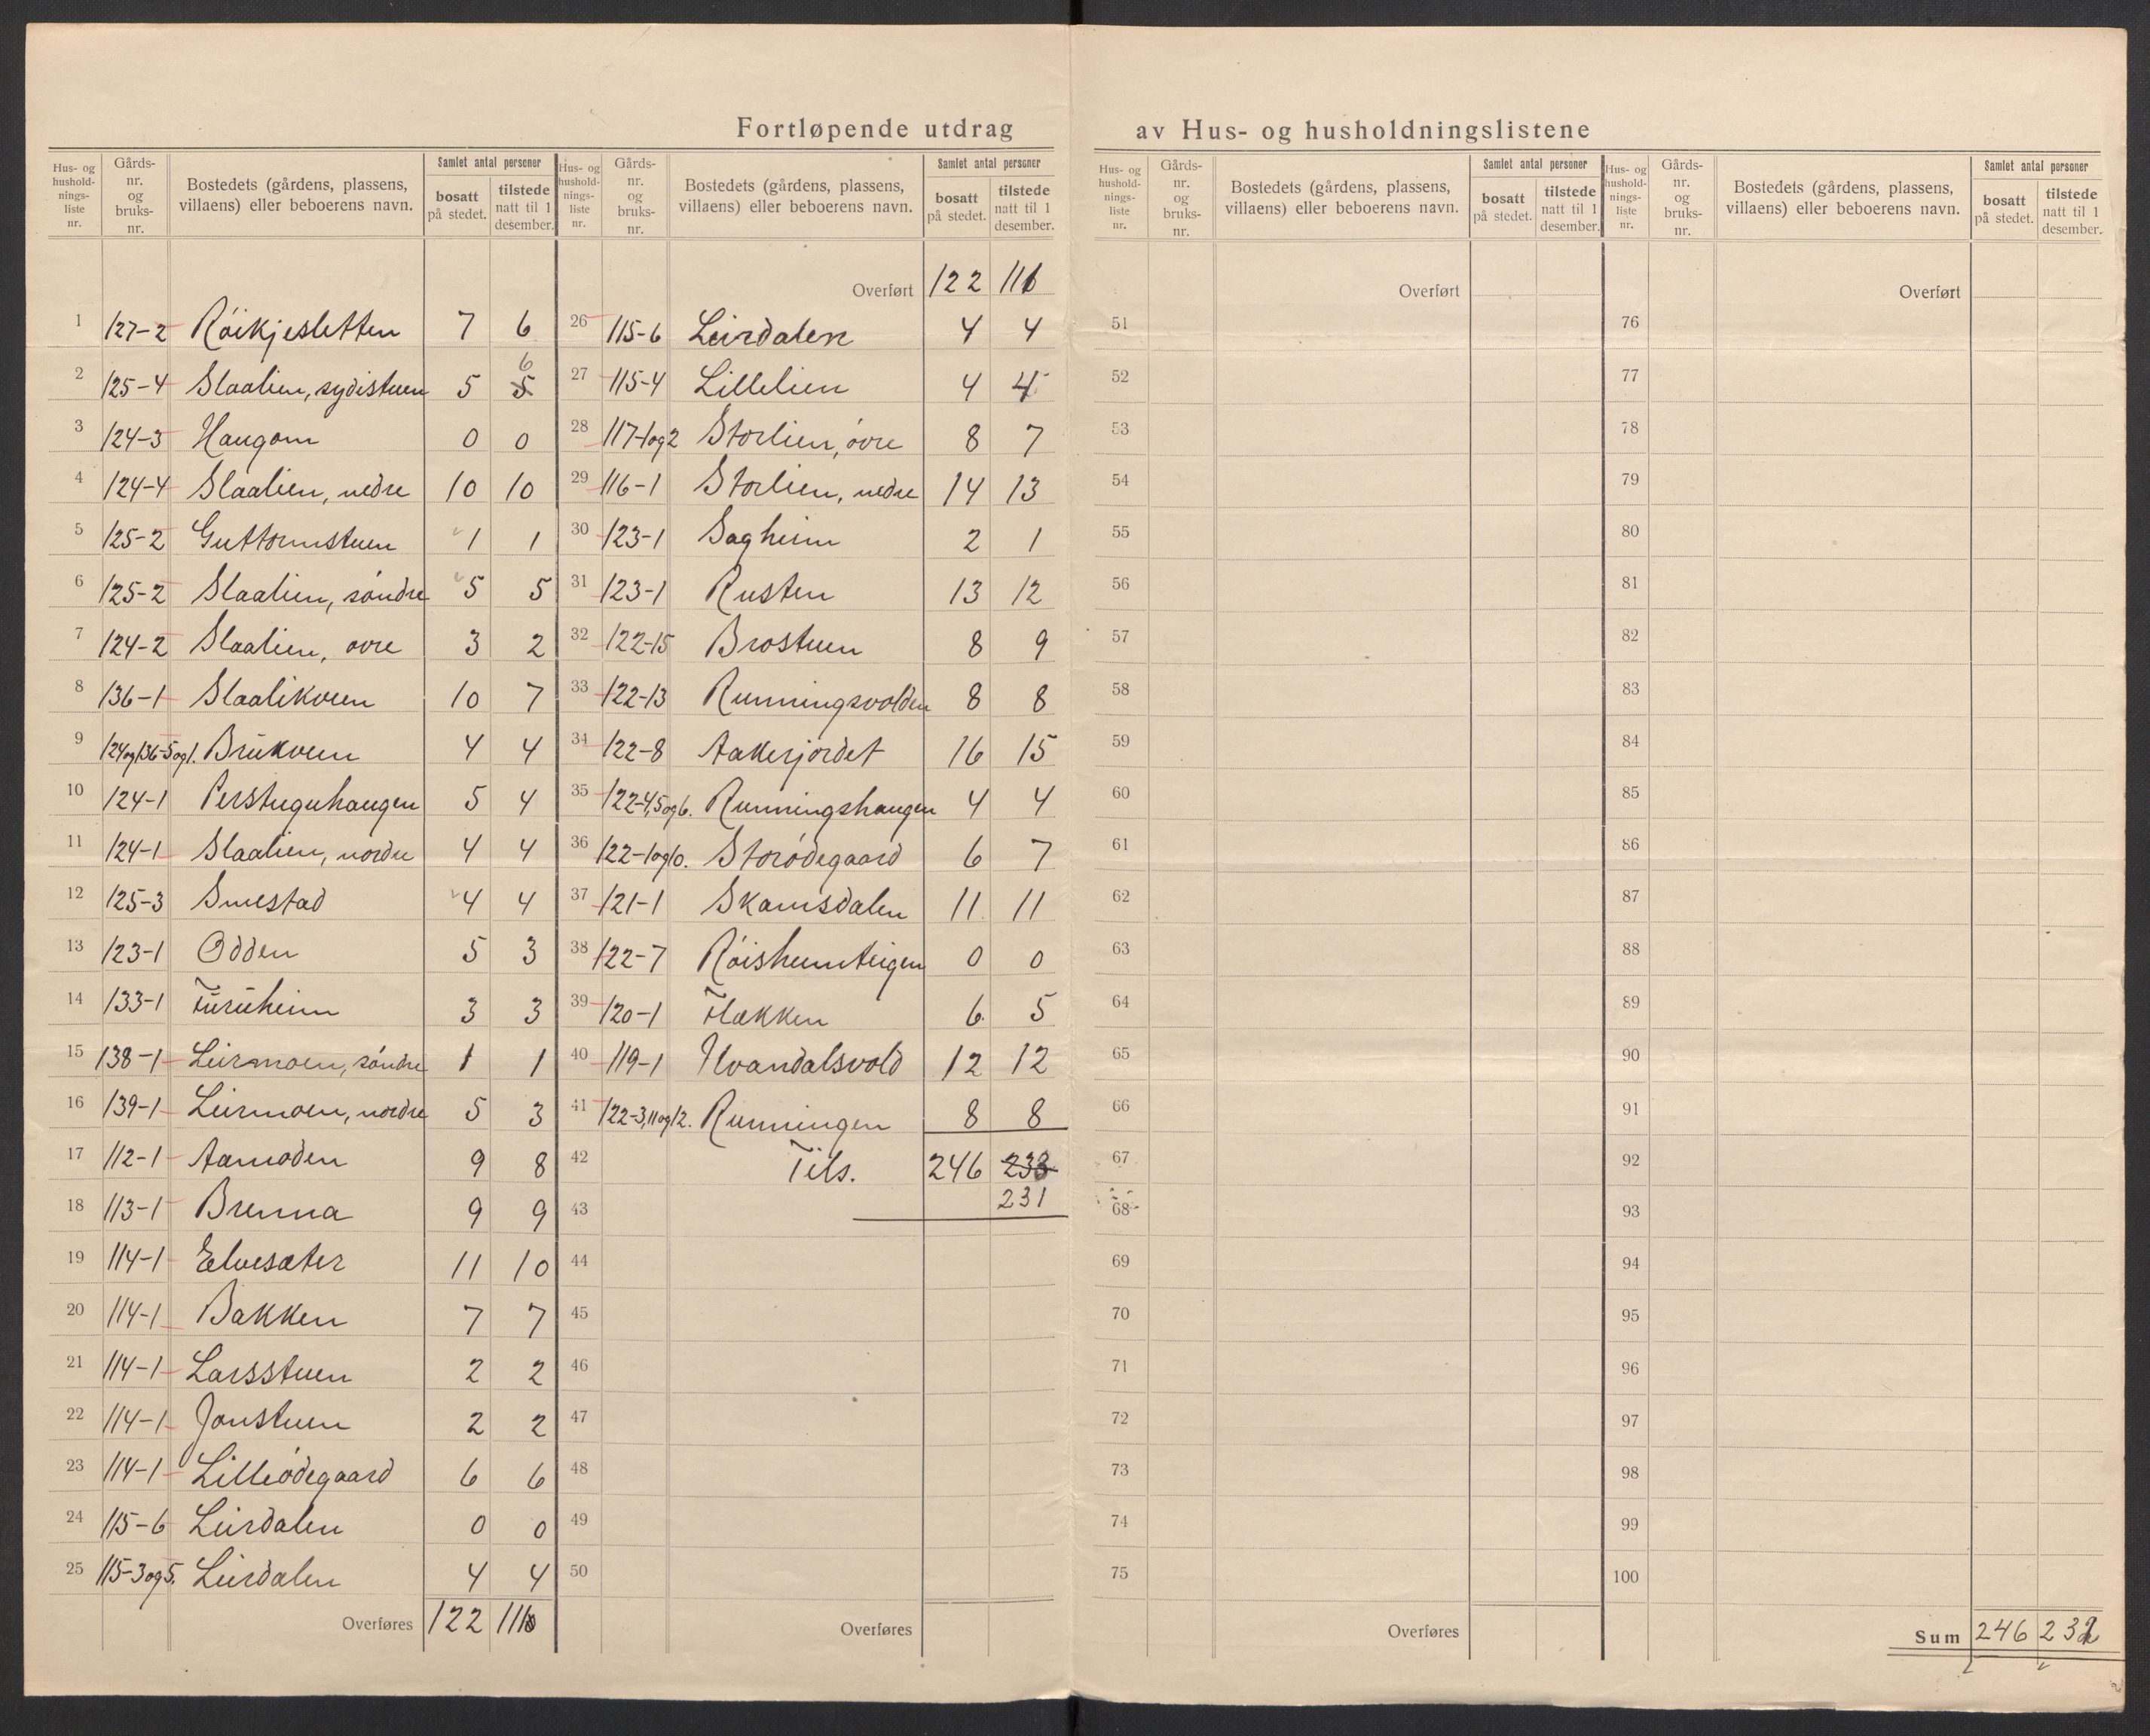 Fortløpende utdrag av Hus- og husholdningslistene
Hus- og hushold-nings-liste nr. | Gårds-nr. og bruks-nr. | Bostedets (gårdens, plassens, villaens) eller beboerens navn. | Samlet antal personer | bosatt på stedet. | tilstede natt til 1 desember.
1 127-2 Röikjesletten 7 6
2 125-4 Slaalien, sydistuen 5 5 6
3 124-3 Haugom 0 0
4 124-4 Slaalien, nedre 10 10
5 125-2 Guttormstuen 1 1
6 125-2 Slaalien, söndre 5 5
7 124-2 Slaalien, övre 3 2
8 136-1 Slaalikveen 10 7
9 124og136-5og1. Brukveen 4 4
10 124-1 Perstuguhaugen 5 4
11 124-1 Slaalien, nordre 4 4
12 125-3 Smestad 4 4
13 123-1 Odden 5 3
14 133-1 Furuheim 3 3
15 138-1 Leirmoen, söndre 1 1
16 139-1 Leirmoen, nordre 5 3
17 112-1 Aamoden 9 8
18 113-1 Brenna 9 9
19 114-1 Elvesæter 11 10
20 114-1 Bakken 7 7
21 114-1 Larsstuen 2 2
22 114-1 Jonstuen 2 2
23 114-1 Lilleödegaard 6 6
24 115-6 Leirdalen 0 0
25 115-3og5. Leirdalen 4 4
Overføres 122
Hus- og hushold-nings-liste nr. | Gårds-nr. og bruks-nr. | Bostedets (gårdens, plassens, villaens) eller beboerens navn. | Samlet antal personer | bosatt på stedet. | tilstede natt til 1 desember.
Overført 122 111
26 115-6 Leirdalen 4 4
27 115-4 Lillelien 4 4
28 117-1og2 Storlien, övre 8 7
29 116-1 Storlien, nedre 14 13
30 123-1 Sagheim 2 1
31 123-1 Rusten 13 12
32 122-15 Brostuen 8 9
33 122-13 Runningsvolden 8 8
34 122-8 Aakerjordet 16 15
35 122-4,5og6. Runningshaugen 4 4
36 122-1og10. Storödegaard 6 7
37 121-1 Skamsdalen 11 11
38 122-7 Röisheimteigen 0 0
39 120-1 Flækken 6 5
40 119-1 Hvandalsvold 12 12
41 122-3,11og12. Runningen 8 8
42 Tils. 246 233
43 231
44
45
46
47
48
49
50
Overføres
Hus- og hushold-nings-liste nr. | Gårds-nr. og bruks-nr. | Bostedets (gårdens, plassens, villaens) eller beboerens navn. | Samlet antal personer | bosatt på stedet. | tilstede natt til 1 desember.
Overført
51
52
53
54
55
56
57
58
59
60
61
62
63
64
65
66
67
68
69
70
71
72
73
74
75
Overføres
Hus- og hushold-nings-liste nr. | Gårds-nr. og bruks-nr. | Bostedets (gårdens, plassens, villaens) eller beboerens navn. | Samlet antal personer | bosatt på stedet. | tilstede natt til 1 desember.
Overført
76
77
78
79
80
81
82
83
84
85
86
87
88
89
90
91
92
93
94
95
96
97
98
99
100
Sum 246 231